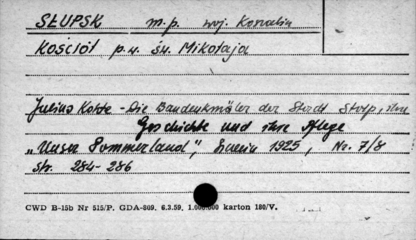 SŁUPSK m.p. woj. Koszalin
Kościół p.w. św. Mikołaja
Julius Kohte - Die Baudenkmäler der Stadt Stolp, ihre
Geschichte und ihre Pflege
„Unser Pommerland", 1925, No. 7/8
str. 284-286
CWD B-15b Nr 515/P. GDA-809. 6.3.59. karton 180/V.